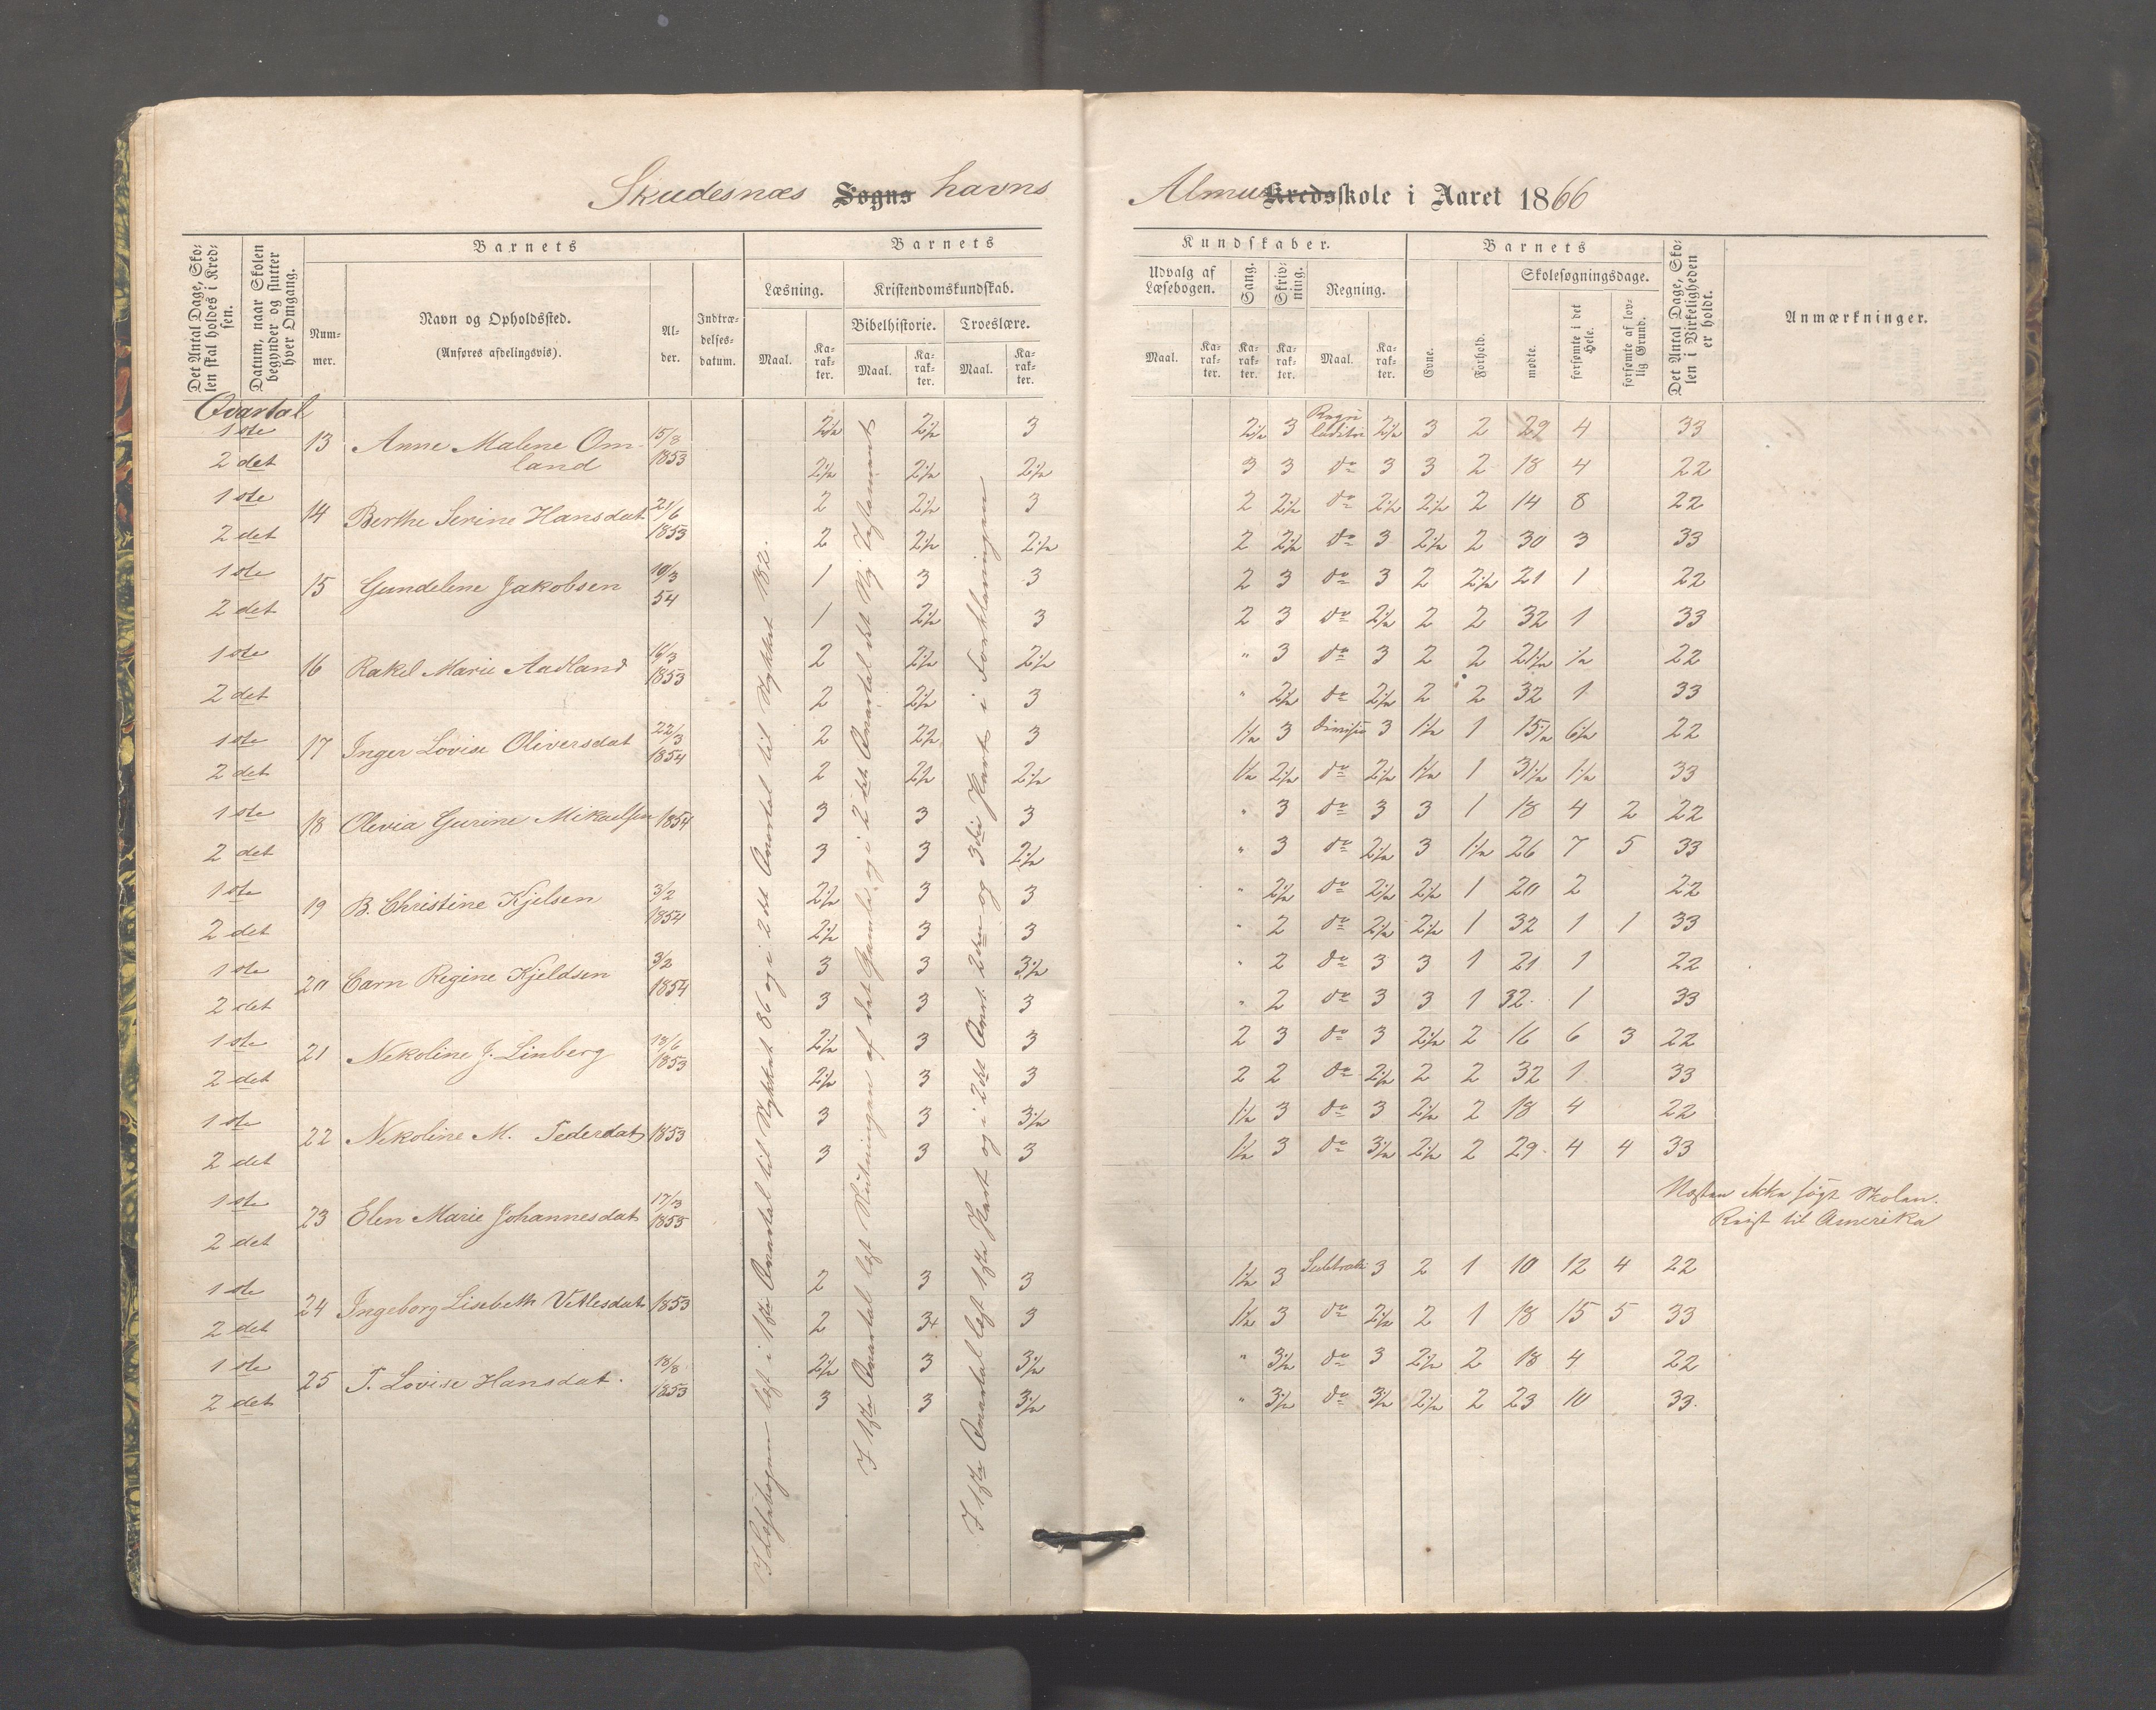 Skudesnæs Sogns havns
Almue Kredsskole i Aaret 1866
Det Antal Dage, Skolen skal holdes i Kredsen.
Datum, naar Skolen begynder og slutter hver Omgang.
Barnets
Nummer.
Navn og Opholdssted.
(Anføres afdelingsvis).
Alder.
Indtrædelsesdatum.
Barnets
Læsning.
Maal.
Karakter.
Kristendomskundskab.
Bibelhistorie.
Maal.
Karakter.
Troeslære.
Maal.
Karakter.
Kundskaber.
Udvalg af Læsebogen.
Maal.
Karakter.
Sang.
Karakter.
Skrivning.
Karakter.
Regning.
Maal.
Karakter.
Barnets
Evne.
Forhold.
Skolesøgningsdage.
mødte.
forsømte i det Hele.
forsømte af lovlig Grund.
Det Antal Dage, Skolen i Virkeligheden er holdt.
Anmærkninger.
Qvartal
1ste 13 Anne Malene Om- 15/8 2½ 2½ 3 2½ 3 2½ 3 2 29 4 33
2det land 1853 2½ 2½ 2½ 3 3 do 3 3 2 18 4 22
1ste 14 Berthe Serine Hansdat 21/6 2 2½ 3 2 2½ do 2½ 2½ 2 14 8 22
2det 1853 2 2½ 2½ 2 2½ do 3 2½ 2 30 3 33
1ste 15 Gundelene Jakobsen 10/3 1 3 3 2 3 do 3 2 2½ 21 1 22
2det 54 1 2½ 3 2 3 do 2½ 2 2 32 1 33
1ste 16 Rakel Marie Aadland 16/3 2 2½ 2½ " 3 do 3 2 2 21½ ½ 22
2det 1853 2 2½ 3 " 2½ do 2½ 2 2 32 1 33
1ste 17 Inger Lovise Oliversdat 22/3 2 2½ 3 1½ 3 Divisio 3 1½ 1 15½ 6½ 22
2det 1854 2 2½ 2½ 1½ 2½ do 2½ 1½ 1 31½ 1½ 33
1ste 18 Olevia Gurine Mikaelsen 1854 3 3 3 " 3 do 3 3 1 18 4 2 22
2det 3 3 2½ " 3 do 2½ 3 1½ 26 7 5 33
1ste 19 B. Christine Kjelsen 3/2 2½ 3 3 " 2½ do 2½ 2½ 1 20 2 22
2det 1854 2½ 3 3 " 2 do 2½ 2½ 1 32 1 1 33
1ste 20 Carn Regine Kjeldsen 3/2 3 3 3½ " 2 do 3 3 1 21 1 22
2det 1854 3 3 3 " 2 do 3 3 1 32 1 33
1ste 21 Nekoline J. Linberg 13/6 2½ 3 3 2 3 do 3 2½ 2 16 6 3 22
2det 1853 2½ 3 3 2 2 do 2½ 2 2 32 1 33
1ste 22 Nekoline M. Pedersdat 1853 3 3 3½ 1½ 3 do 3 2½ 2 18 4 22
2det 3 3 3 1½ 3 do 3½ 2½ 2 29 4 4 33
1ste 23 Elen Marie Johannesdat 17/3 Næsten ikke søgt Skolen.
2det 1853 Reist til Amerika
1ste 24 Ingeborg Lisebeth Vetlesdat 1853 2 3 3 1½ 3 Subtrak 3 2 1 10 12 4 22
2det 2 3+ 3 1½ 3 do 2½ 2 1 18 15 5 33
1ste 25 T. Lovise Hansdat. 18/8 2½ 3 3½ " 3½ do 3 2½ 2 18 4 22
2det 1853 3 3 3½ " 3½ do 3½ 2½ 2 23 10 33.
I Læsebogen læst i 1ste Quartal til Stykket 86 og i 2det Quartal til Stykket 182.
I 1ste Quartal læst Slutningen af det Gamle og i 2det Quartal det Ny Testament
I 1ste Quartal læst 1ste Part og i 2det Quart. 2den og 3die Part i Forklaringen